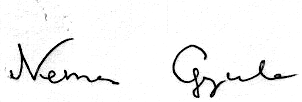 Nemes Gyula